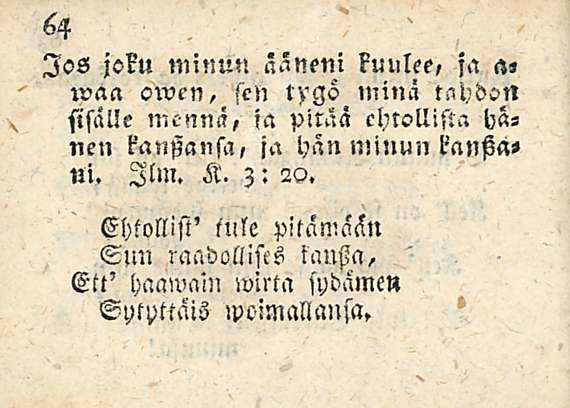 64
Jos joku minun ääneni kuulee, ja a=
waa owen, sen tygö minä tahdon
sisälle mennä, ja pitää ehtollista hä=
nen kanßansa, ja hän minun kanßa=
ni. Ilm. K. 3: 20.
Ehtollist' tule pitämään
Sun raadollises kanßa,
Ett' haawain wirta sydämen
Sytyttäis woimallansa.